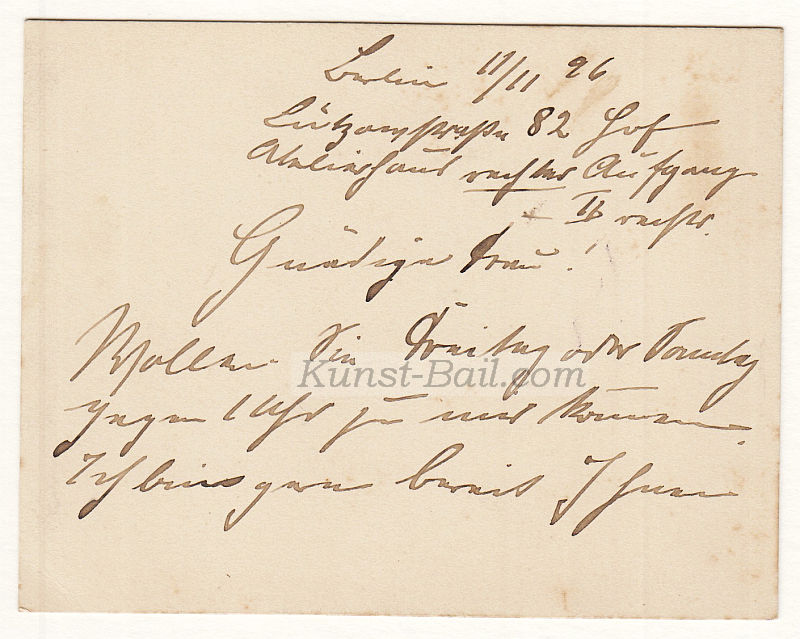 Berlin 11/11 96
Lützowstraße 82 Hof
Atelierhaus rechter Aufgang
II rechts.
Gnädige Frau!
Wollen Sie Freitag oder Sonntag
gegen 1 Uhr zu mir kommen.
Ich bin gern bereit Ihnen
Kunst-Bail.com